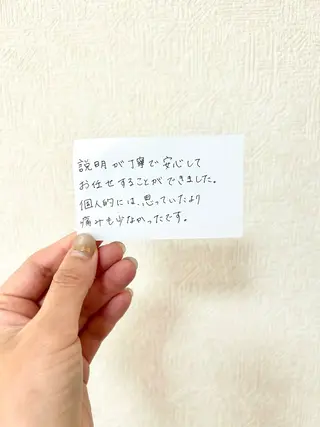 説明が丁寧で安心して
お任せすることができました。
個人的には、思っていたより
痛みも少なかったです。